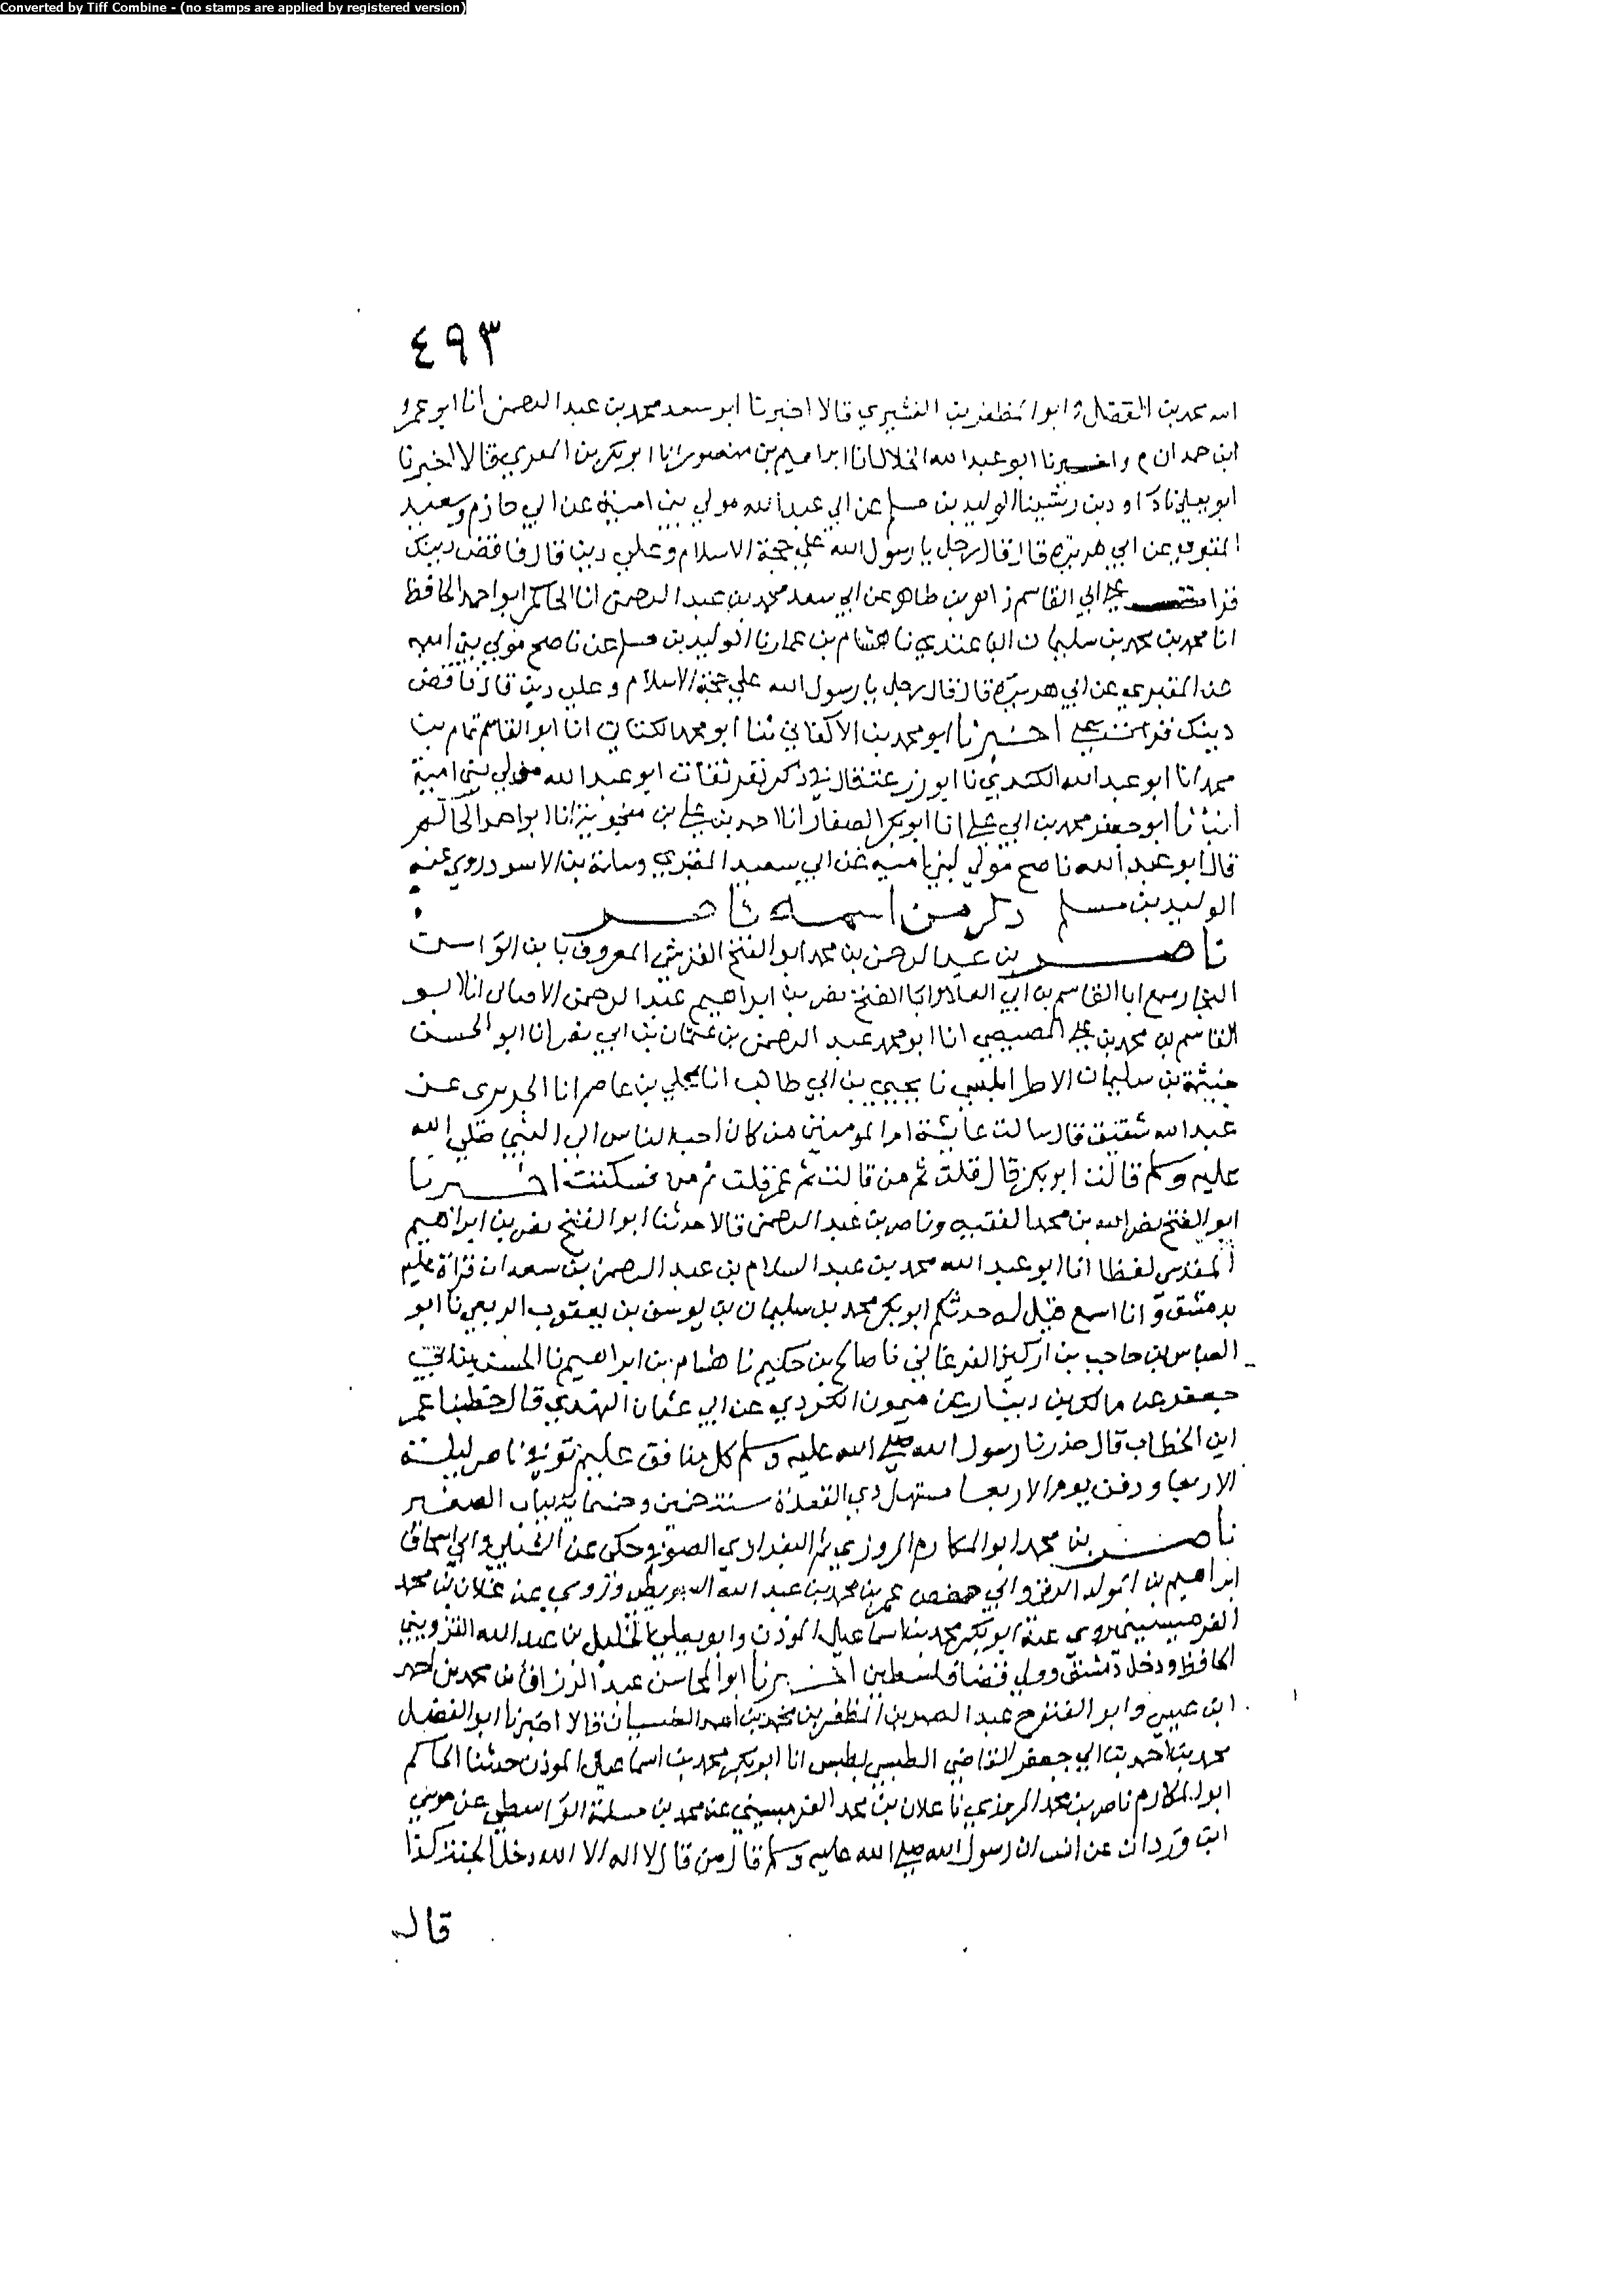 Converted by Tiff Combine - (no stamps are applied by registered version)
٤٩٣
الله محمد بن الفضل وابو المظفر بن القشيري قالا اخبرنا ابو سعد محمد بن عبد الرحمن انا ابو عمرو
ابن حمدان واخبرنا ابو عبد الله الخلال انا ابراهيم بن منصور انا ابو بكر بن المقري قالا اخبرنا
ابو يعلى نا داود بن رشيد نا الوليد بن مسلم عن ابي عبد الله مولي بني امية عن ابي حازم وسعيد
المقبري عن ابي هريرة قال قال رجل يا رسول الله علي حجة الاسلام وعلي دين قال فاقض دينك
علي ابي القاسم زاهر بن طاهر عن ابي سعد محمد بن عبد الرحمن انا الحاكم ابو احمد الحافظ
انا محمد بن محمد بن سليمان الباغندي نا هشام بن عمار نا الوليد بن مسلم عن ناصح مولي بني اميه
عن المقبري عن ابي هريرة قال قال رجل يا رسول الله علي حجة الاسلام وعلي دين قال فاقض
دينك اخبرنا ابو محمد بن الاكفاني ثنا ابو محمد الكتاني انا ابو القاسم تمام بن
محمد انا ابو عبد الله الكندي نا ابو زرعة قال في ذكر نفر ثقات ابو عبد الله مولي بني امية
انبانا ابو جعفر محمد بن ابي علي انا ابو بكر الصفار انا احمد بن علي بن منجويه انا ابو احمد الحاكم
قال ابو عبد الله ناصح مولي لبني اميه عن ابي سعيد المقبري بن الاسود روي عنه
الوليد بن مسلم ذكر من اسمه ناصر
ناصر بن عبد الرحمن بن محمد ابو الفتح القرشي المعروف بابن الراسن
النجار سمع ابا القاسم بن ابي العلا وابا الفتح نصر بن ابراهيم عبد الرحمن انا ابو
القاسم بن محمد بن علي المصيصي انا ابو محمد عبد الرحمن بن عثمان بن ابي نصر انا ابو الحسن
خيثمة بن سليمان الاطرابلسي نا يحيى بن ابي طالب انا علي بن عاصم انا الجريري عن
عبد الله شقيق قال سالت عايشة ام المومنين من كان احب الناس الي النبي صلي الله
عليه وسلم قالت ابو بكر قال قلت ثم من قالت ثم عمر قلت ثم من فسكتت اخبرنا
ابو الفتح نصر الله بن محمد الفقيه وناصر بن عبد الرحمن قالا حدثنا ابو الفتح نصر بن ابراهيم
المقدسي لفظا انا ابو عبد الله محمد بن عبد السلام بن عبد الرحمن بن سعدان قراة عليه
بدمشق وانا اسمع قيل له حدثكم ابو بكر محمد بن سليمان بن يوسف بن يعقوب الربعي نا ابو
العباس بن حاجب بن اركين الفرغاني نا صالح بن حكيم نا هشام بن ابراهيم نا الحسن بن ابي
جعفر عن مالك بن دينار عن ميمون الكردي عن ابي عثمان النهدي قال خطبنا عمر
ابن الخطاب قال حذرنا رسول الله صلي الله عليه وسلم كل منافق عليم توفي ناصر ليلة
الاربعا ودفن يوم الاربعا مستهل ذي القعدة سنة خمس وخمسماية بباب الصغير
ناصر بن محمد ابو المكارم المروزي ثم البغدادي الصوفي حكى عن الشبلي وابي اسحاق
ابراهيم بن المولد الرقي وابي حفص عمر بن محمد بن عبد الله وروي عن علان بن محمد
القرميسيني روي عنه ابو بكر محمد بن اسماعيل الموذن وابو يعلي الخليل بن عبد الله القزويني
الحافظ ودخل دمشق وولي قضا فلسطين اخبرنا ابو المحاسن عبد الرزاق بن محمد بن احمد
ابن عيسى وابو الفتوح عبد الصمد بن المظفر بن محمد بن احمد قالا اخبرنا ابو الفضل
محمد بن احمد بن ابي جعفر القاضي الطبسي بطبس انا ابو بكر محمد بن اسماعيل الموذن حدثنا الحاكم
ابو المكارم ناصر بن محمد المروزي نا علان بن محمد القرميسيني عن محمد بن مسلمة الواسطي عن موسي
ابن وردان عن انس ان رسول الله صلي الله عليه وسلم قال من قال لا اله الا الله دخل الجنة كذا
قال